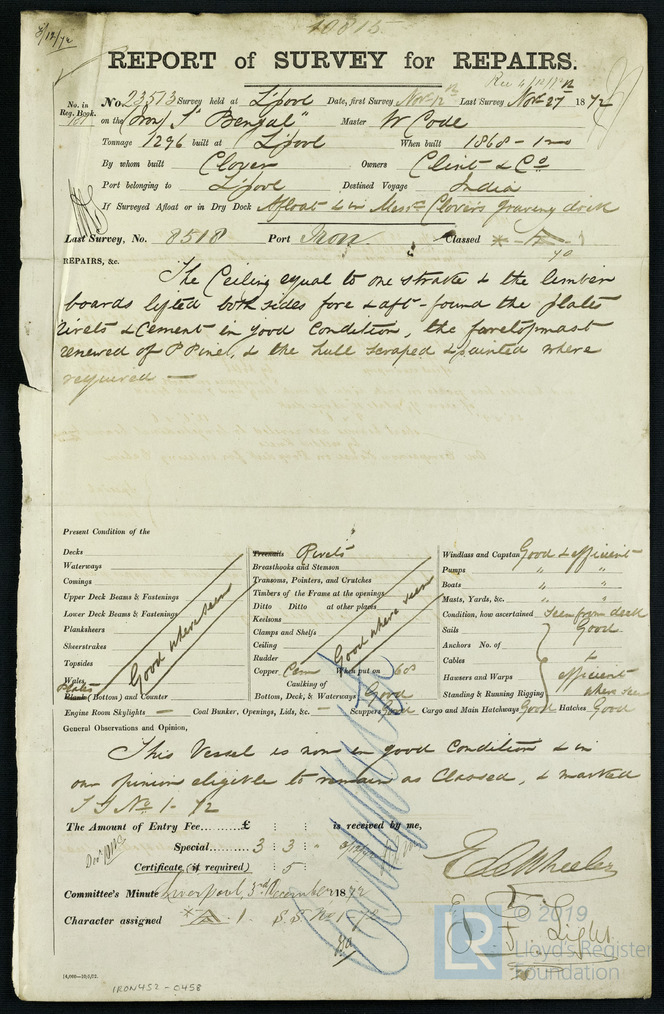 8/12/72
10815
REPORT of SURVEY for REPAIRS.
Rec 4/12/72
No. in Reg. Book. No. 23513 Survey held at L'pool Date, first Survey Nov 12th Last Survey Nov 27 1872
on the (Iron) S "Bengal" Master W Code
Tonnage 1296 built at L'pool When built 1868 - 12
By whom built Clover Owners Clint & Co
Port belonging to L'pool Destined Voyage India
If Surveyed Afloat or in Dry Dock Afloat & in Messrs Clover's graving dock
Last Survey, No. 8518 Port Iron. Classed
REPAIRS, &c.
The Ceiling equal to one strake & the limber
boards lifted both sides fore & aft - found the plates
rivets & Cement in good Condition, the foretopmast
renewed of P Pine, & the hull scraped & painted where
required —
Present Condition of the
Decks Treenails Rivets Windlass and Capstan Good & efficient
Waterways Breasthooks and Stemson Pumps " "
Comings Transoms, Pointers, and Crutches Boats " "
Upper Deck Beams & Fastenings Timbers of the Frame at the openings Masts, Yards, &c. " "
Lower Deck Beams & Fastenings Ditto Ditto at other places Condition, how ascertained Seen from deck
Planksheers Keelsons Sails Good
Sheerstrakes Clamps and Shelfs Anchors No. of
Topsides Ceiling Cables
Wales Rudder Hawsers and Warps efficient
Good where seen Good where seen
Copper Cem When put on 68 Standing & Running Rigging where seen
Plates Plank (Bottoms) and Counter Caulking of Bottom, Deck, & Waterways Good
Engine Room Skylights — Coal Bunker, Openings, Lids, &c. — Scuppers Good Cargo and Main Hatchways Good Hatches Good
General Observations and Opinion,
This Vessel is now in good Condition & in
our opinion eligible to remain as Classed, & marked
S S No 1 - 72
The Amount of Entry Fee......... £ : : is received by me,
Special......... 3 : 3 : "
Certificate (if required) : 5 :
Committee's Minute Liverpool, 3rd December 1872
Character assigned A. 1 S.S No 1-72
E C Wheeler
Light
14,000—10/6/72.
IRON452-0458
LR © 2019
Lloyd's Register
Foundation